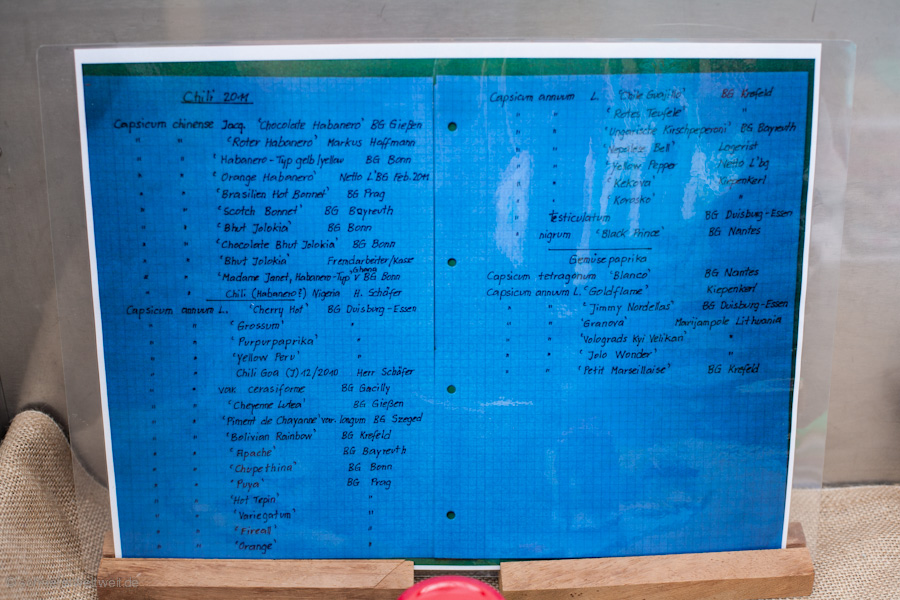 Chili 2011
Capsicum chinense Jacq. 'Chocolate Habanero' BG Gießen
" " 'Roter Habanero' Markus Hoffmann
" " 'Habanero-Typ gelb/yellow BG Bonn
" " 'Orange Habanero' Netto L'BG Feb. 2011
" " 'Brasilien Hot Bonnet' BG Prag
" " 'Scotch Bonnet' BG Bayreuth
" " 'Bhut Jolokia' BG Bonn
" " 'Chocolate Bhut Jolokia' BG Bonn
" " 'Bhut Jolokia' Fremdarbeiter/Kasse
" " 'Madame Janet, Habanero-Typ' v. Ghana BG Bonn
" " Chili (Habanero?) Nigeria H. Schäfer
Capsicum annuum L. 'Cherry Hot' BG Duisburg-Essen
" " 'Grossum' "
" " 'Purpurpaprika' "
" " 'Yellow Peru' "
" " Chili Goa (J) 12/2010 Herr Schäfer
" " var. cerasiforme BG Gacilly
" " 'Cheyenne Lutea' BG Gießen
" " 'Piment de Chayanne' var. longum BG Szeged
" " 'Bolixian Rainbow' BG Krefeld
" " 'Apache' BG Bayreuth
" " 'Chupethina' BG Bonn
" " 'Puya' BG Prag
" " 'Hot Tepin' "
" " 'Variegatum' "
" " 'Fireall' "
" " 'Orange' "
Capsicum annuum L. 'Chile Guajillo' BG Krefeld
" " 'Rotes Teufele' "
" " 'Ungarische Kirschpeperoni' BG Bayreuth
" " Bell' Lagerist
" " 'Yellow Pepper' Netto L'bg
" " 'Kekova' Kiepenkerl
" " 'Korosko' "
" testiculatum BG Duisburg-Essen
" nigrum 'Black Prince' BG Nantes
Gemüsepaprika
Capsicum tetragonum 'Blanco' BG Nantes
Capsicum annuum L. 'Goldflame' Kiepenkerl
" " 'Jimmy Nordellos' BG Duisburg-Essen
" " 'Granova' Marijampole Lithuania
" " 'Volograds Kyi Velikan' "
" " 'Jolo Wonder' "
" " 'Petit Marseillaise' BG Krefeld